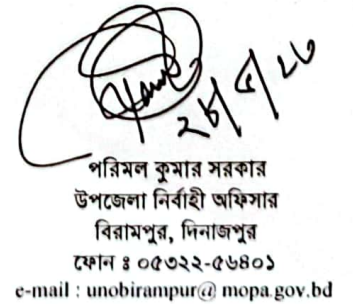 ২৮/৫/২৩
পরিমল কুমার সরকার
উপজেলা নির্বাহী অফিসার
বিরামপুর, দিনাজপুর
ফোন ঃ ০৫৩২২-৫৬৪০১
e-mail : unobirampur@ mopa.gov.bd